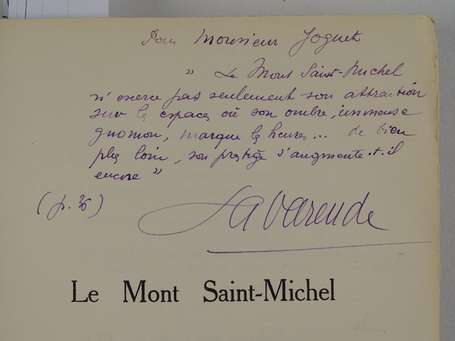 Pour Monsieur Joguet
" Le Mont Saint-Michel
n'exerce pas seulement son attraction
sur les espaces où son ombre, immense
gnomon, marque les heures... de bien
plus loin, son prestige s'augmente-t-il
encore "
(p. 36)
La Varende
Le Mont Saint-Michel